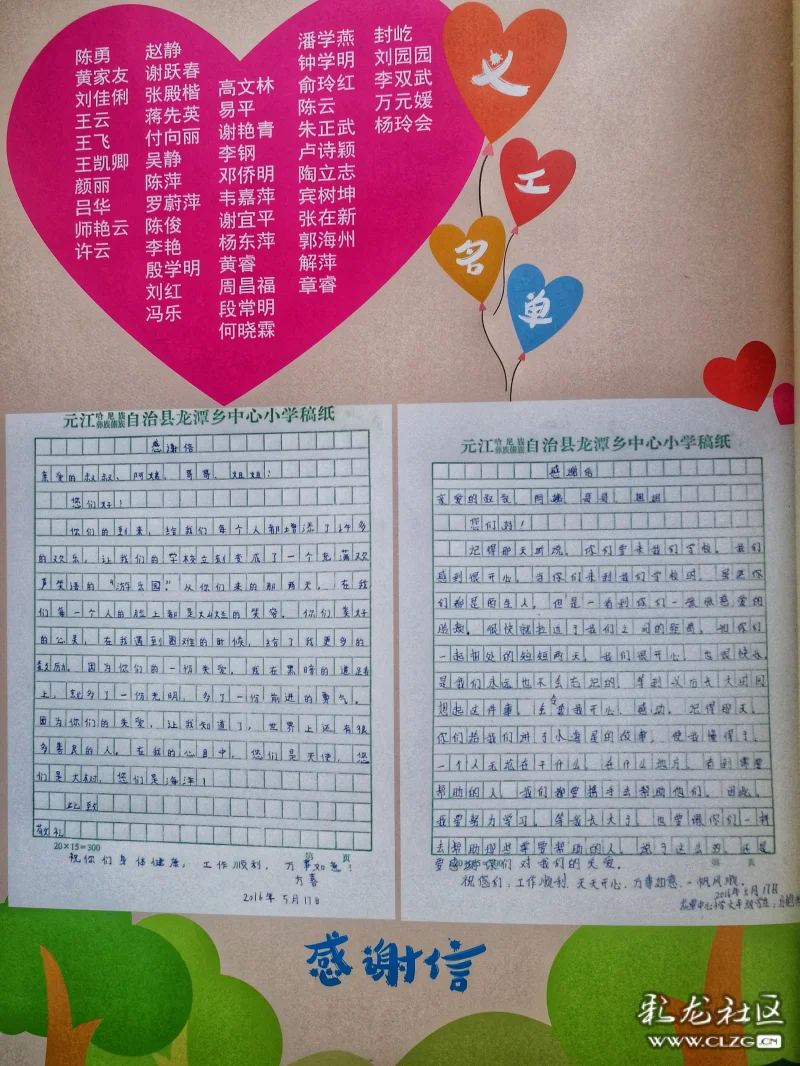 陈勇
黄家友
刘佳俐
王云
王飞
王凯卿
颜丽
吕华
师艳云
许云
赵静
谢跃春
张殿楷
蒋先英
付向丽
吴静
陈萍
罗蔚萍
陈俊
李艳
殷学明
刘红
冯乐
高文林
易平
谢艳青
李钢
邓侨明
韦嘉萍
谢宜平
杨东萍
黄睿
周昌福
段常明
何晓霖
潘学燕
钟学明
俞玲红
陈云
朱正武
卢诗颖
陶立志
宾树坤
张在新
郭海州
解萍
章睿
封屹
刘园园
李双武
万元媛
杨玲会
义
工
名
单
元江哈尼族彝族傣族自治县龙潭乡中心小学稿纸
感谢信
亲爱的叔叔、阿姨、哥哥、姐姐:
您们好!
你们的到来,给我们每个人都增添了许多
的欢乐,让我们的学校立刻变成了一个充满欢
声笑语的“游乐园。”从你们来的那两天,在我
们每一个人的脸上都是灿烂的笑容。你们美好
的心灵,在我遇到困难的时候,给了我更多的
鼓励。因为你们的一份关爱,我在黑暗的道路
上,就多了一份光明,多了一份前进的勇气。
因为你们的关爱,让我知道了,世界上还有很
多善良的人。在我的心目中,您们是天使,您
们是大树,您们是海洋!
此致
敬礼
20×15=300
第 页
祝你们身体健康,工作顺利,万事如意!
方春
2016年5月17日
元江哈尼族彝族傣族自治县龙潭乡中心小学稿纸
感谢信
亲爱的叔叔、阿姨、哥哥、姐姐
您们好!
记得那天听说,你们要来我们学校,我们
感到很开心。当你们来到我们学校时,虽然你
们都是陌生人,但是一看到你们一张张慈爱的
脸庞,很快就拉近了我们之间的距离。和你们
一起相处的短短两天,我们很开心,也很快乐
是我们永远也不会忘记的。等到以后长大时回
想起这件事,会令我开心、感动。记得那天,
你们给我们讲了小海星的故事,使我懂得了,
一个人无论在干什么,在什么地方,看到需要
帮助的人,我们都要携手去帮助他们。因此,
我要努力学习。等我长大了,也要像你们一样
去帮助那些需要帮助的人。说了这么多,还是
要感谢你们对我们的关爱。
第 页
祝您们:工作顺利、天天开心、万事如意、一帆风顺。
2016年5月17日
感谢信
彩龙社区
WWW.CLZG.CN